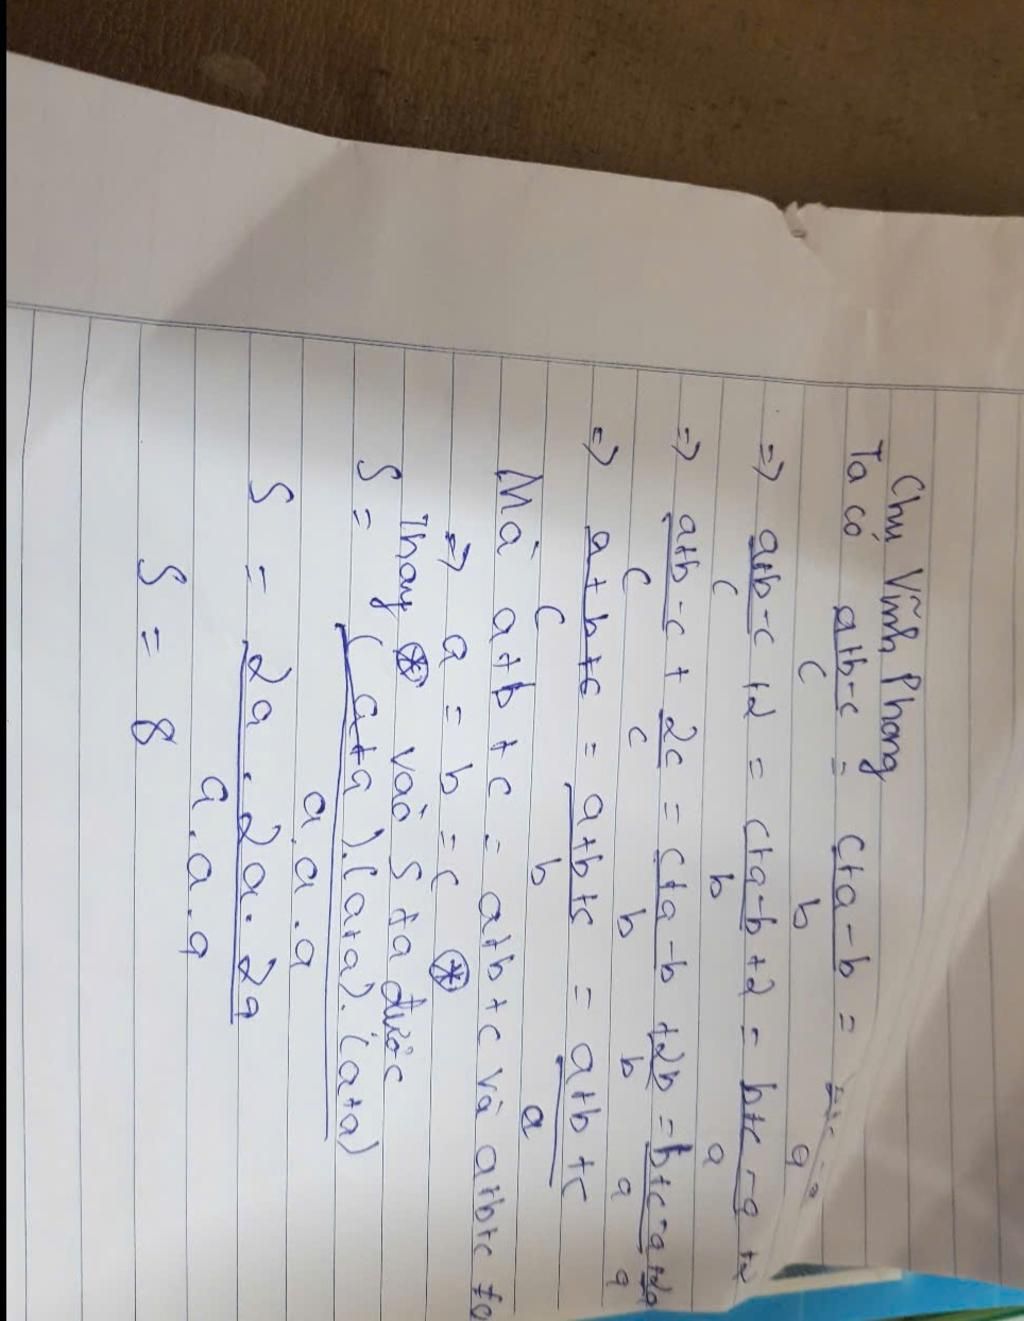 Chu Vĩnh Phong
Ta có a+b-c/c = c+a-b/b = b+c-a/a
=> a+b-c/c +2 = c+a-b/b +2 = b+c-a/a +2
=> a+b-c/c + 2c/c = c+a-b/b + 2b/b = b+c-a/a + 2a/a
=> a+b+c/c = a+b+c/b = a+b+c/a
Mà a+b+c = a+b+c và a+b+c ≠0
=> a = b = c (*)
Thay (*) vào S ta được
S = (a+a).(a+a).(a+a)/a.a.a
S = 2a.2a.2a/a.a.a
S = 8